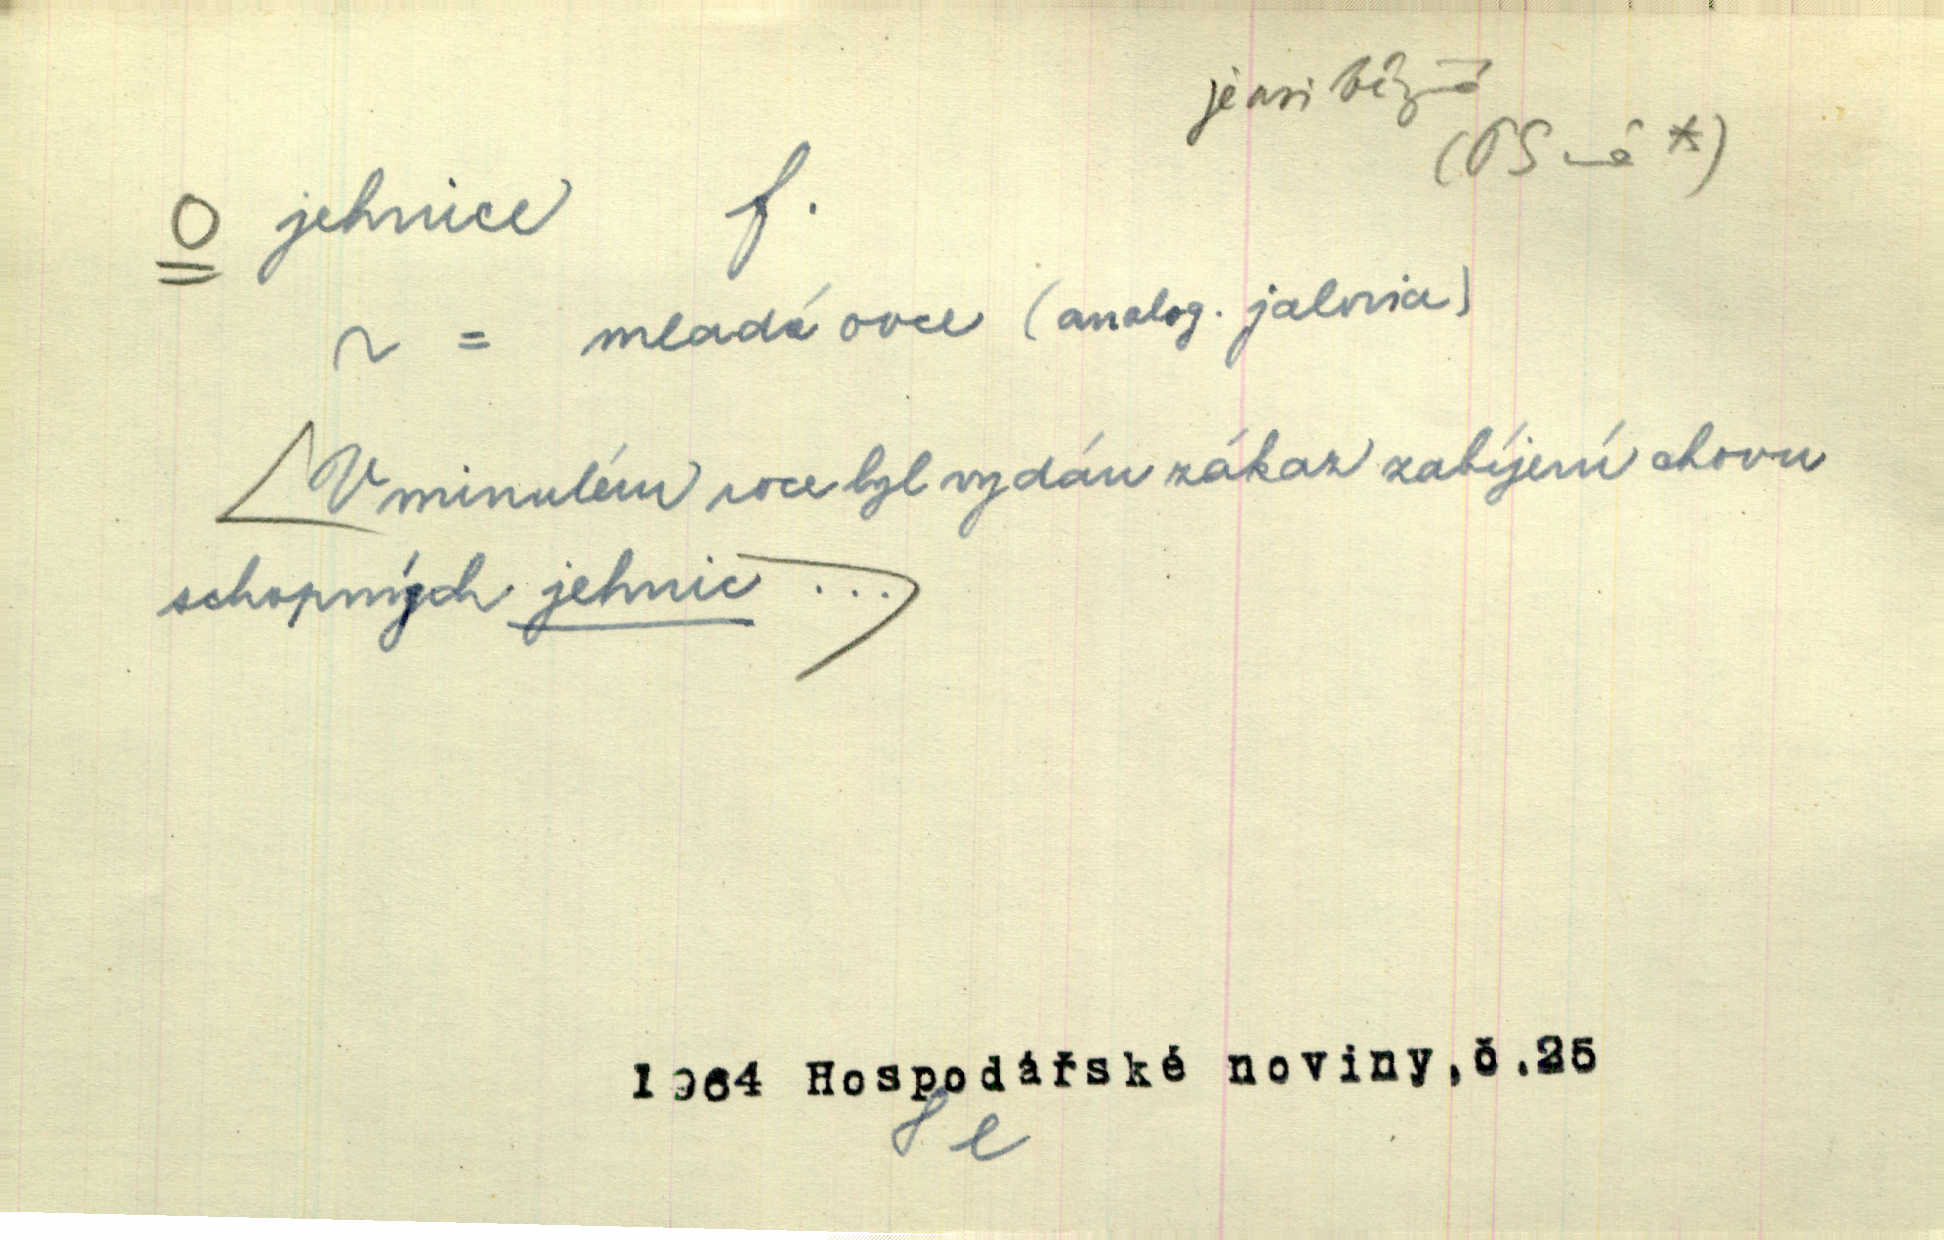 je asi běžné
(PS má *)
O jehnice f.
~ = mladá ovce (analog. jalovice)
V minulém roce byl vydán zákaz zabíjení chovu
schopných jehnic ...
1964 Hospodářské noviny,č.25